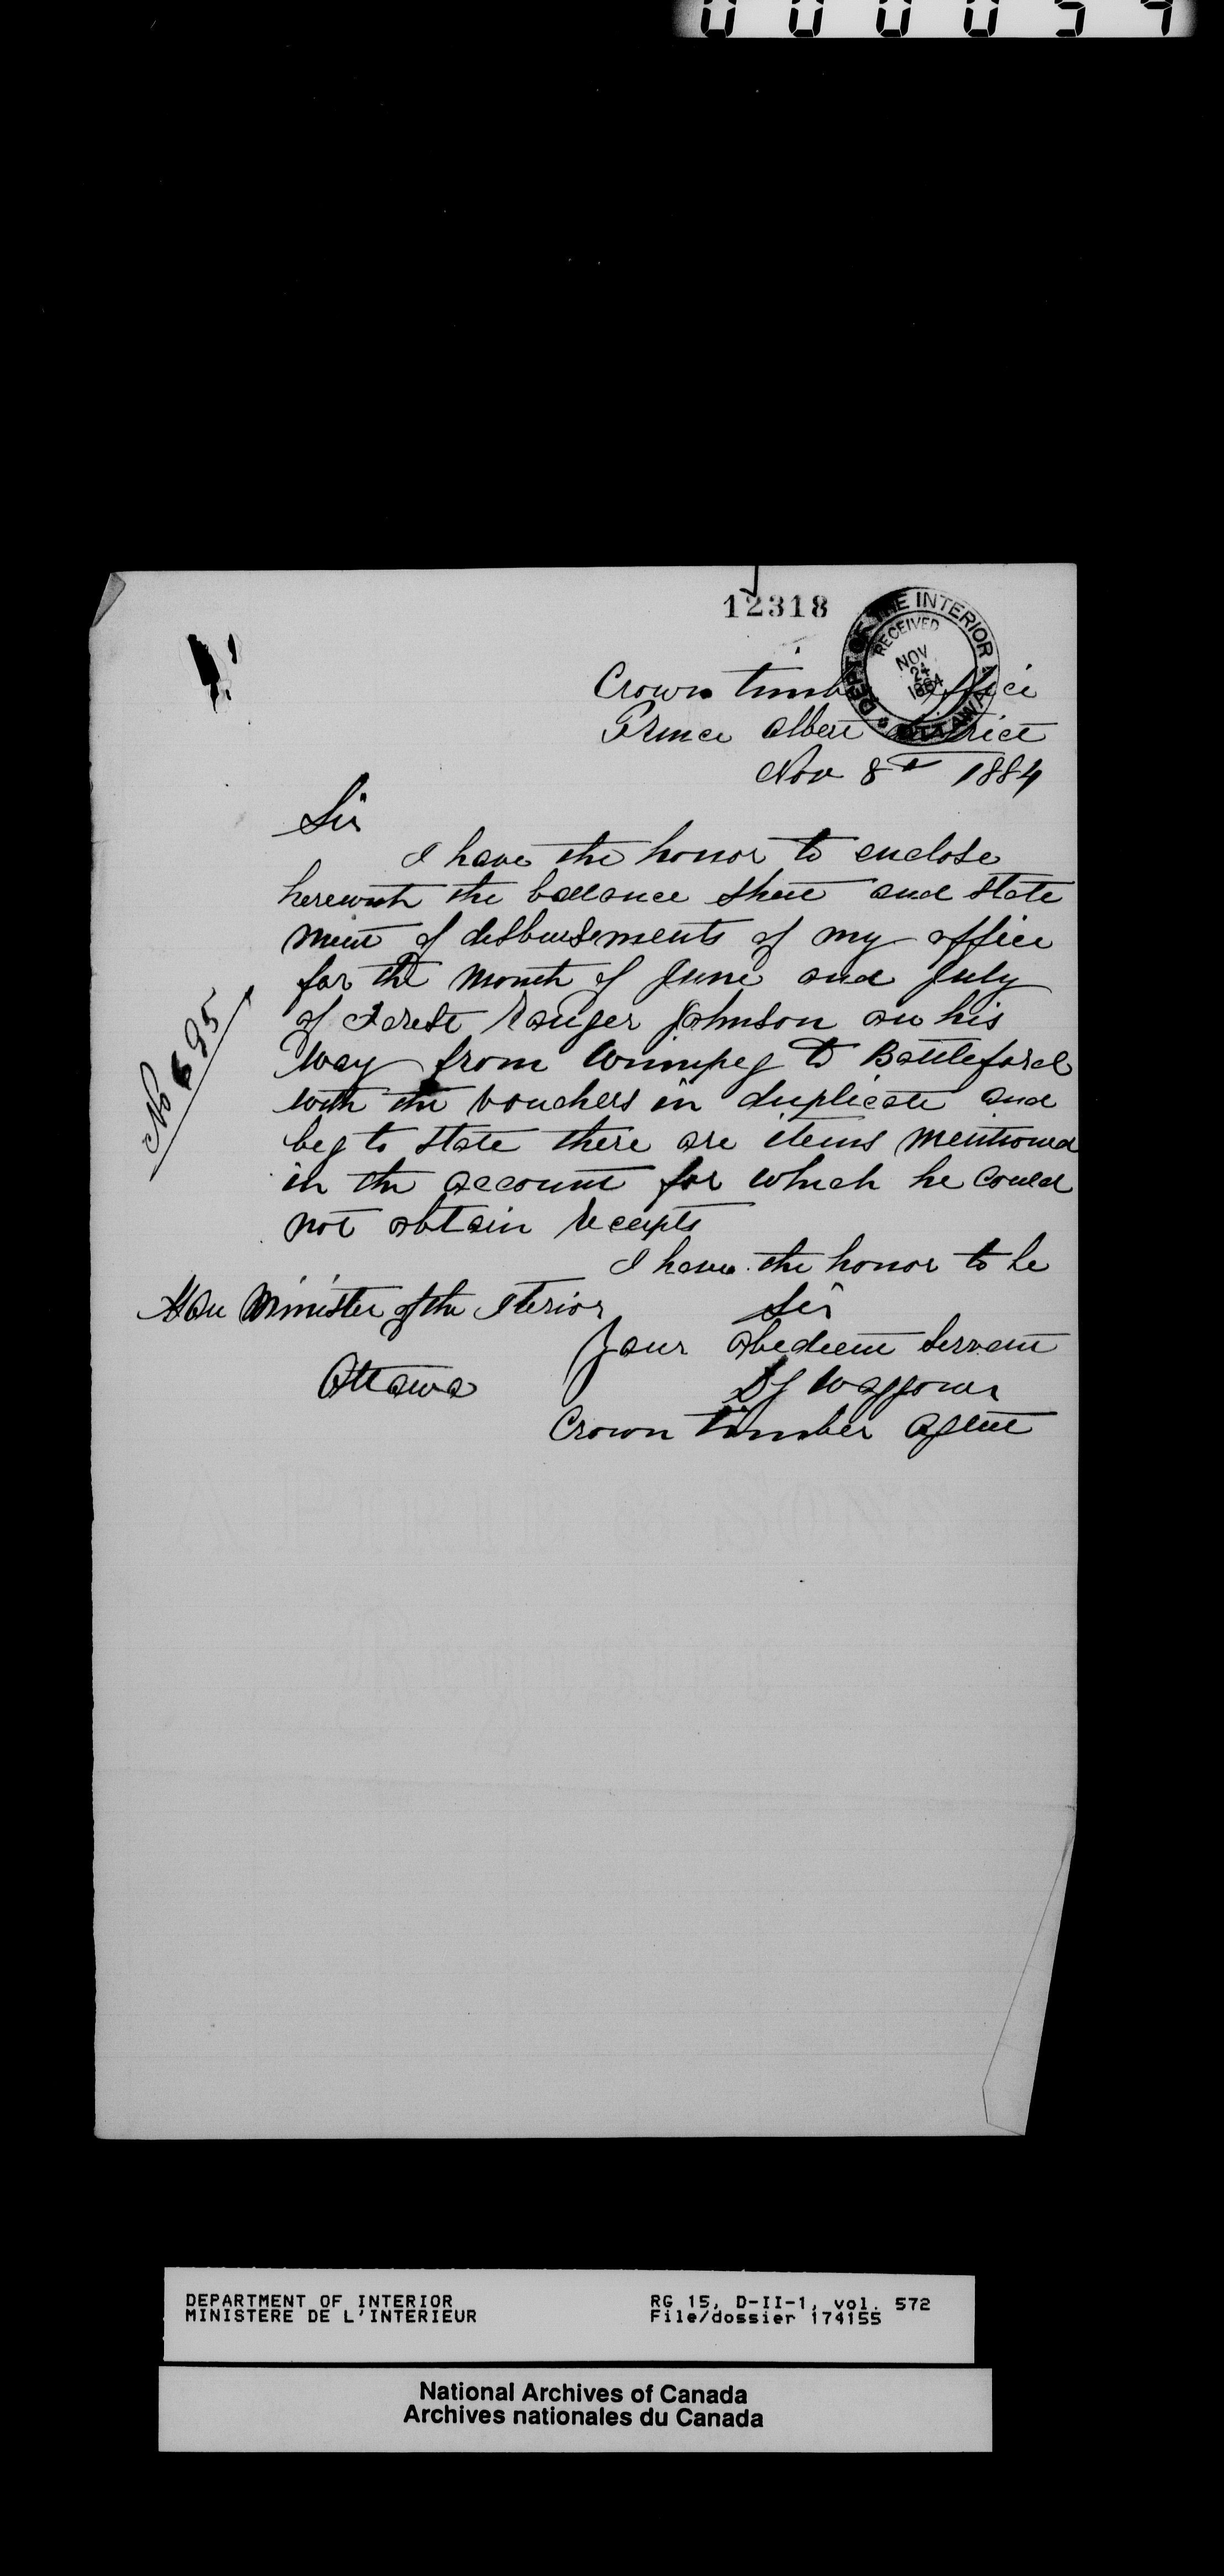 12318
DEPT OF THE INTERIOR OTTAWA
RECEIVED
NOV
24
1884
Crown timber office
Prince Albert District
Nov 8th 1884
Sir
I have the honor to enclose
herewith the ballance sheet and state
ment of disbursements of my office
for the month of June and July
of Forest Ranger Johnson on his
way from Winnipeg to Battleford
with the vouchers in duplicate and
beg to state there are items mentioned
in the account for which he could
not obtain receipts
I have the honor to be
Sir
Your obedient servant
DJ Waggoner
Crown timber agent
Hon Minister of the Iterior
Ottawa
DEPARTMENT OF INTERIOR
MINISTERE DE L'INTERIEUR
RG 15, D-II-1, vol. 572
File/dossier 174155
National Archives of Canada
Archives nationales du Canada